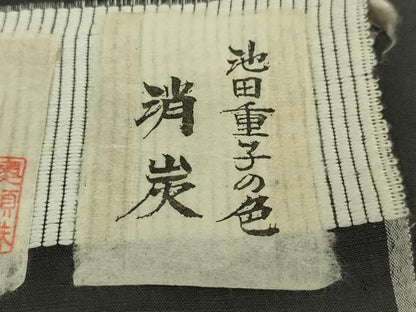 池田重子の色
消炭